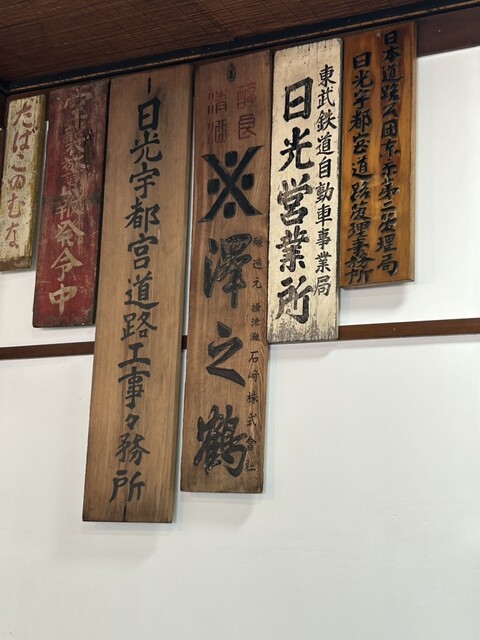 日本道路公団東京第二管理局
日光宇都宮道路管理事務所
東武鉄道自動車事業局
日光営業所
醇良
清酒
※澤之鶴
醸造元 攝津灘 石崎株式會社
日光宇都宮道路工事々務所
空襲警報発令中
たばこのむな